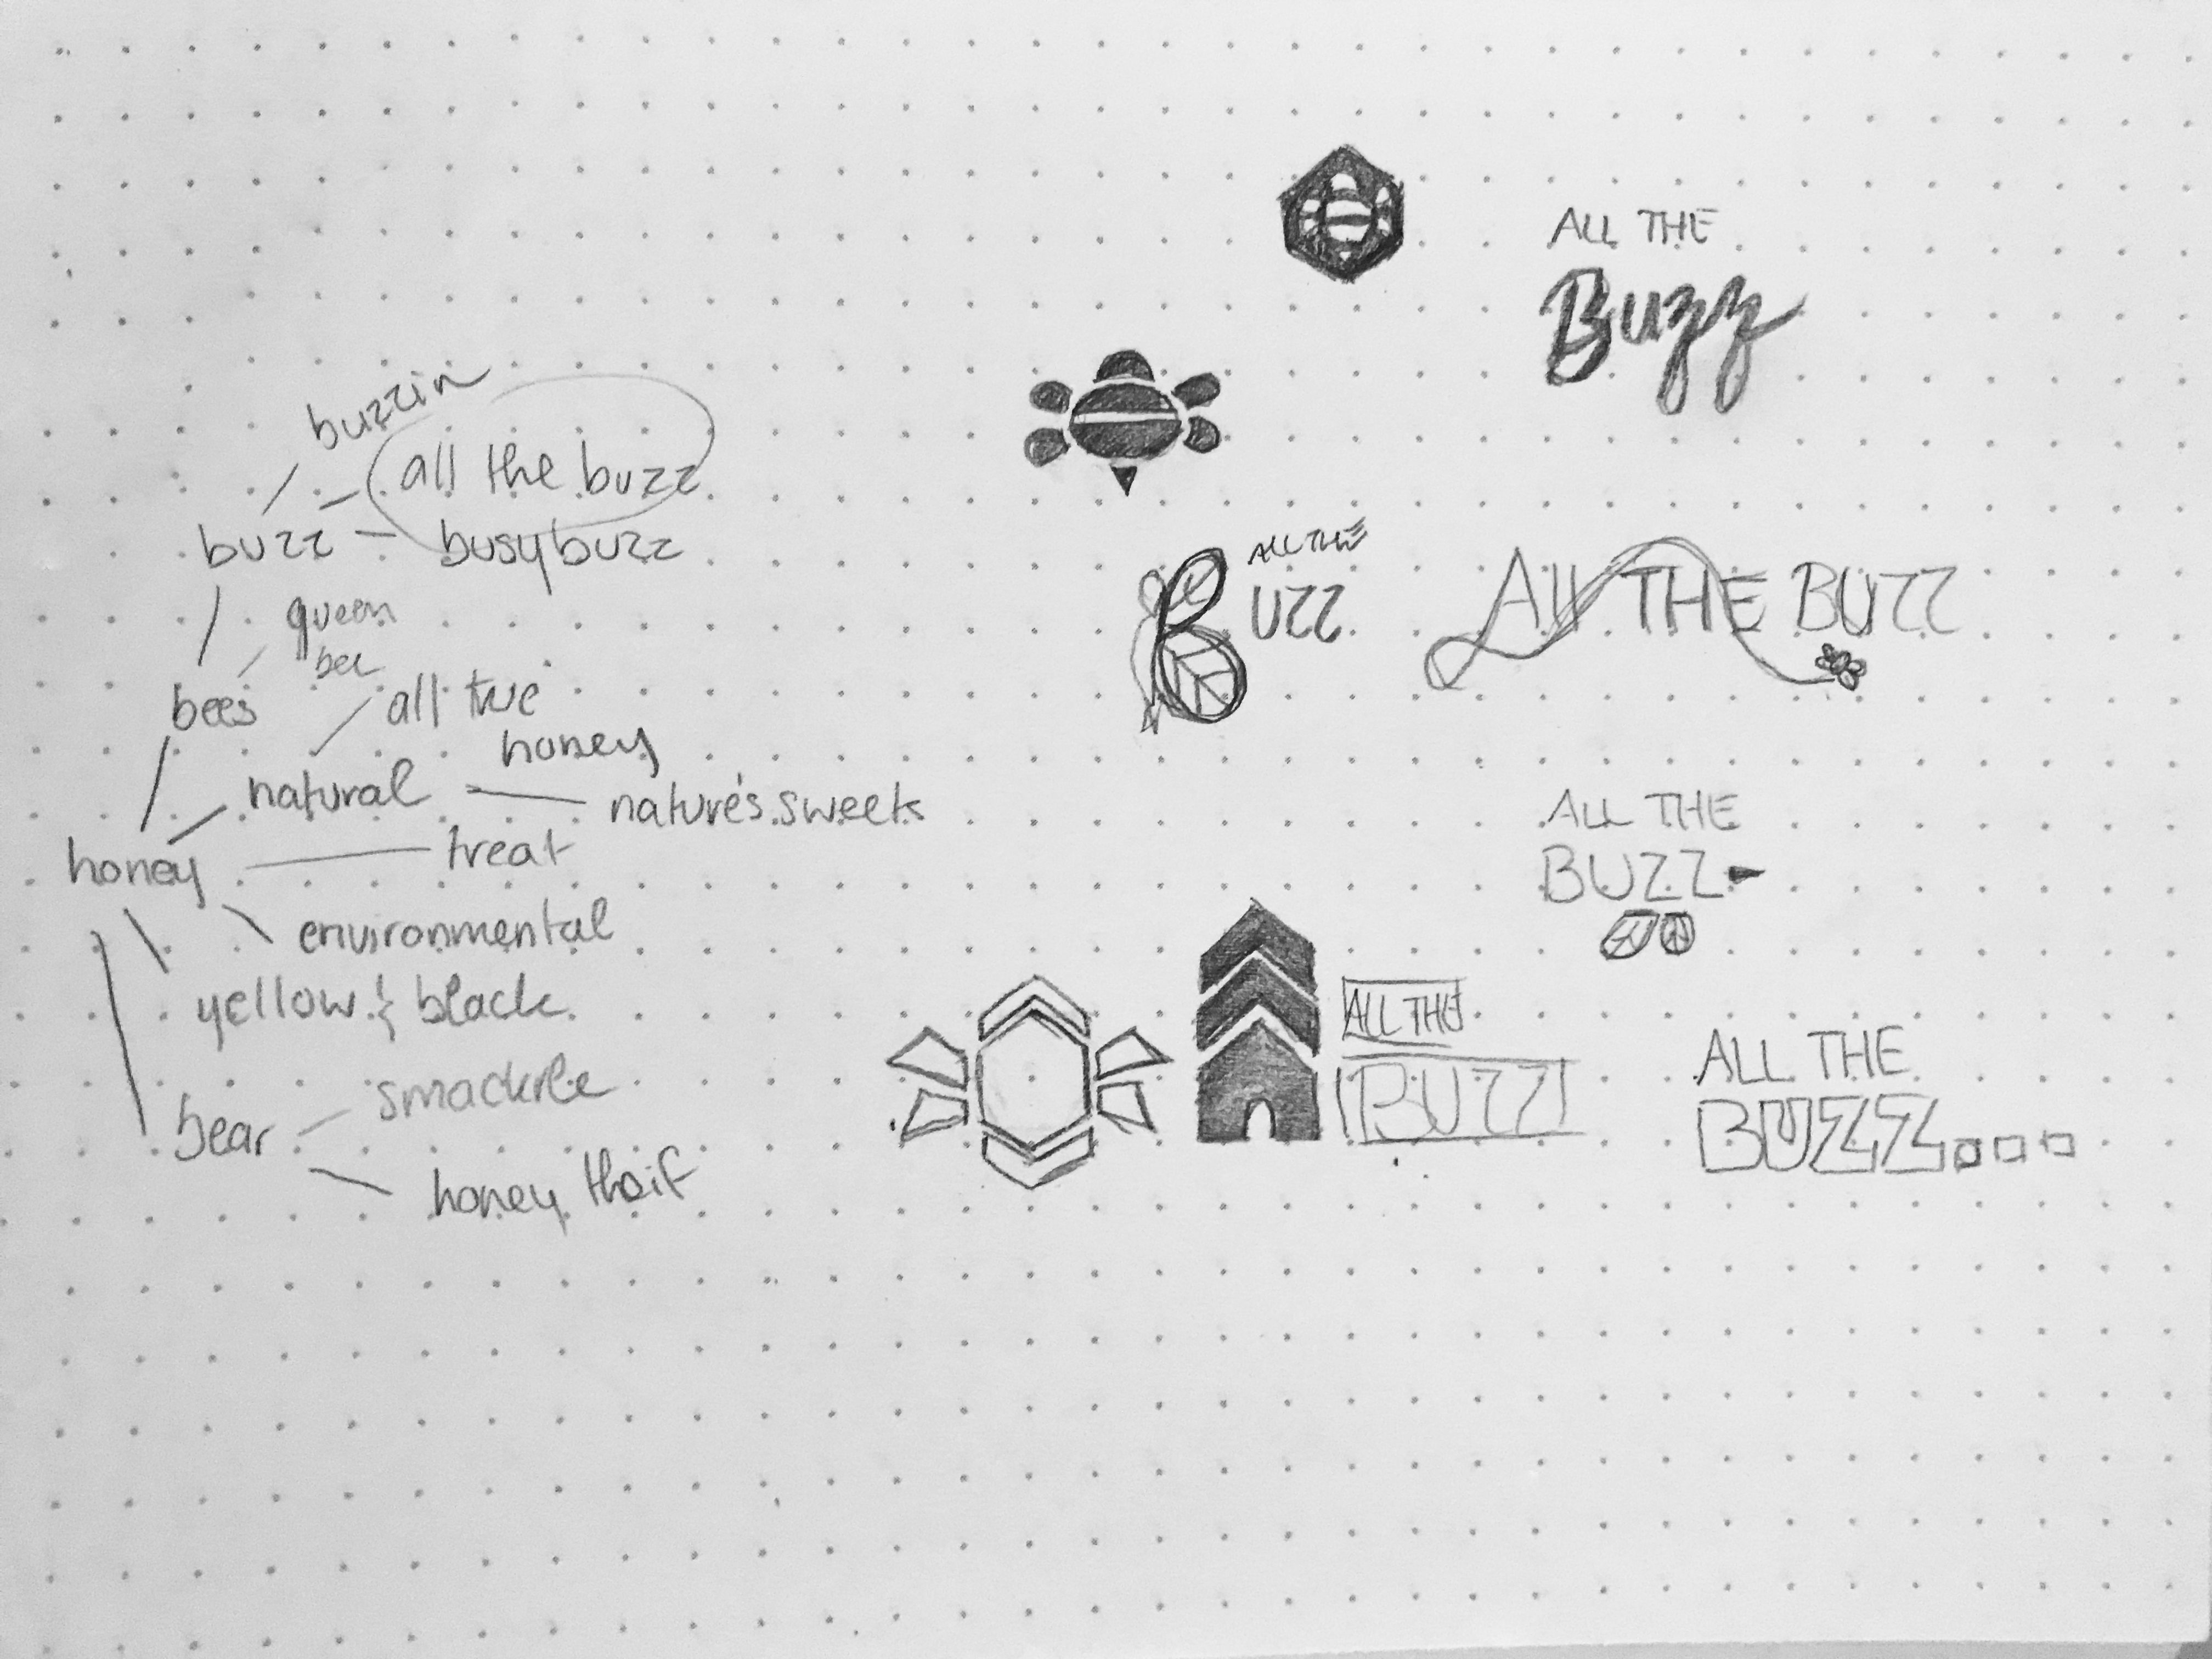 buzzin
all the buzz
buzz
busy buzz
queen
bee
bees
all true
honey
natural
nature's sweets
treat
honey
environmental
yellow & black
bear
honey theif
ALL THE
Buzz
ALL THE
BUZZ
All THE BUZZ
ALL THE
BUZZ
ALL THE
BUZZ
ALL THE
BUZZ...